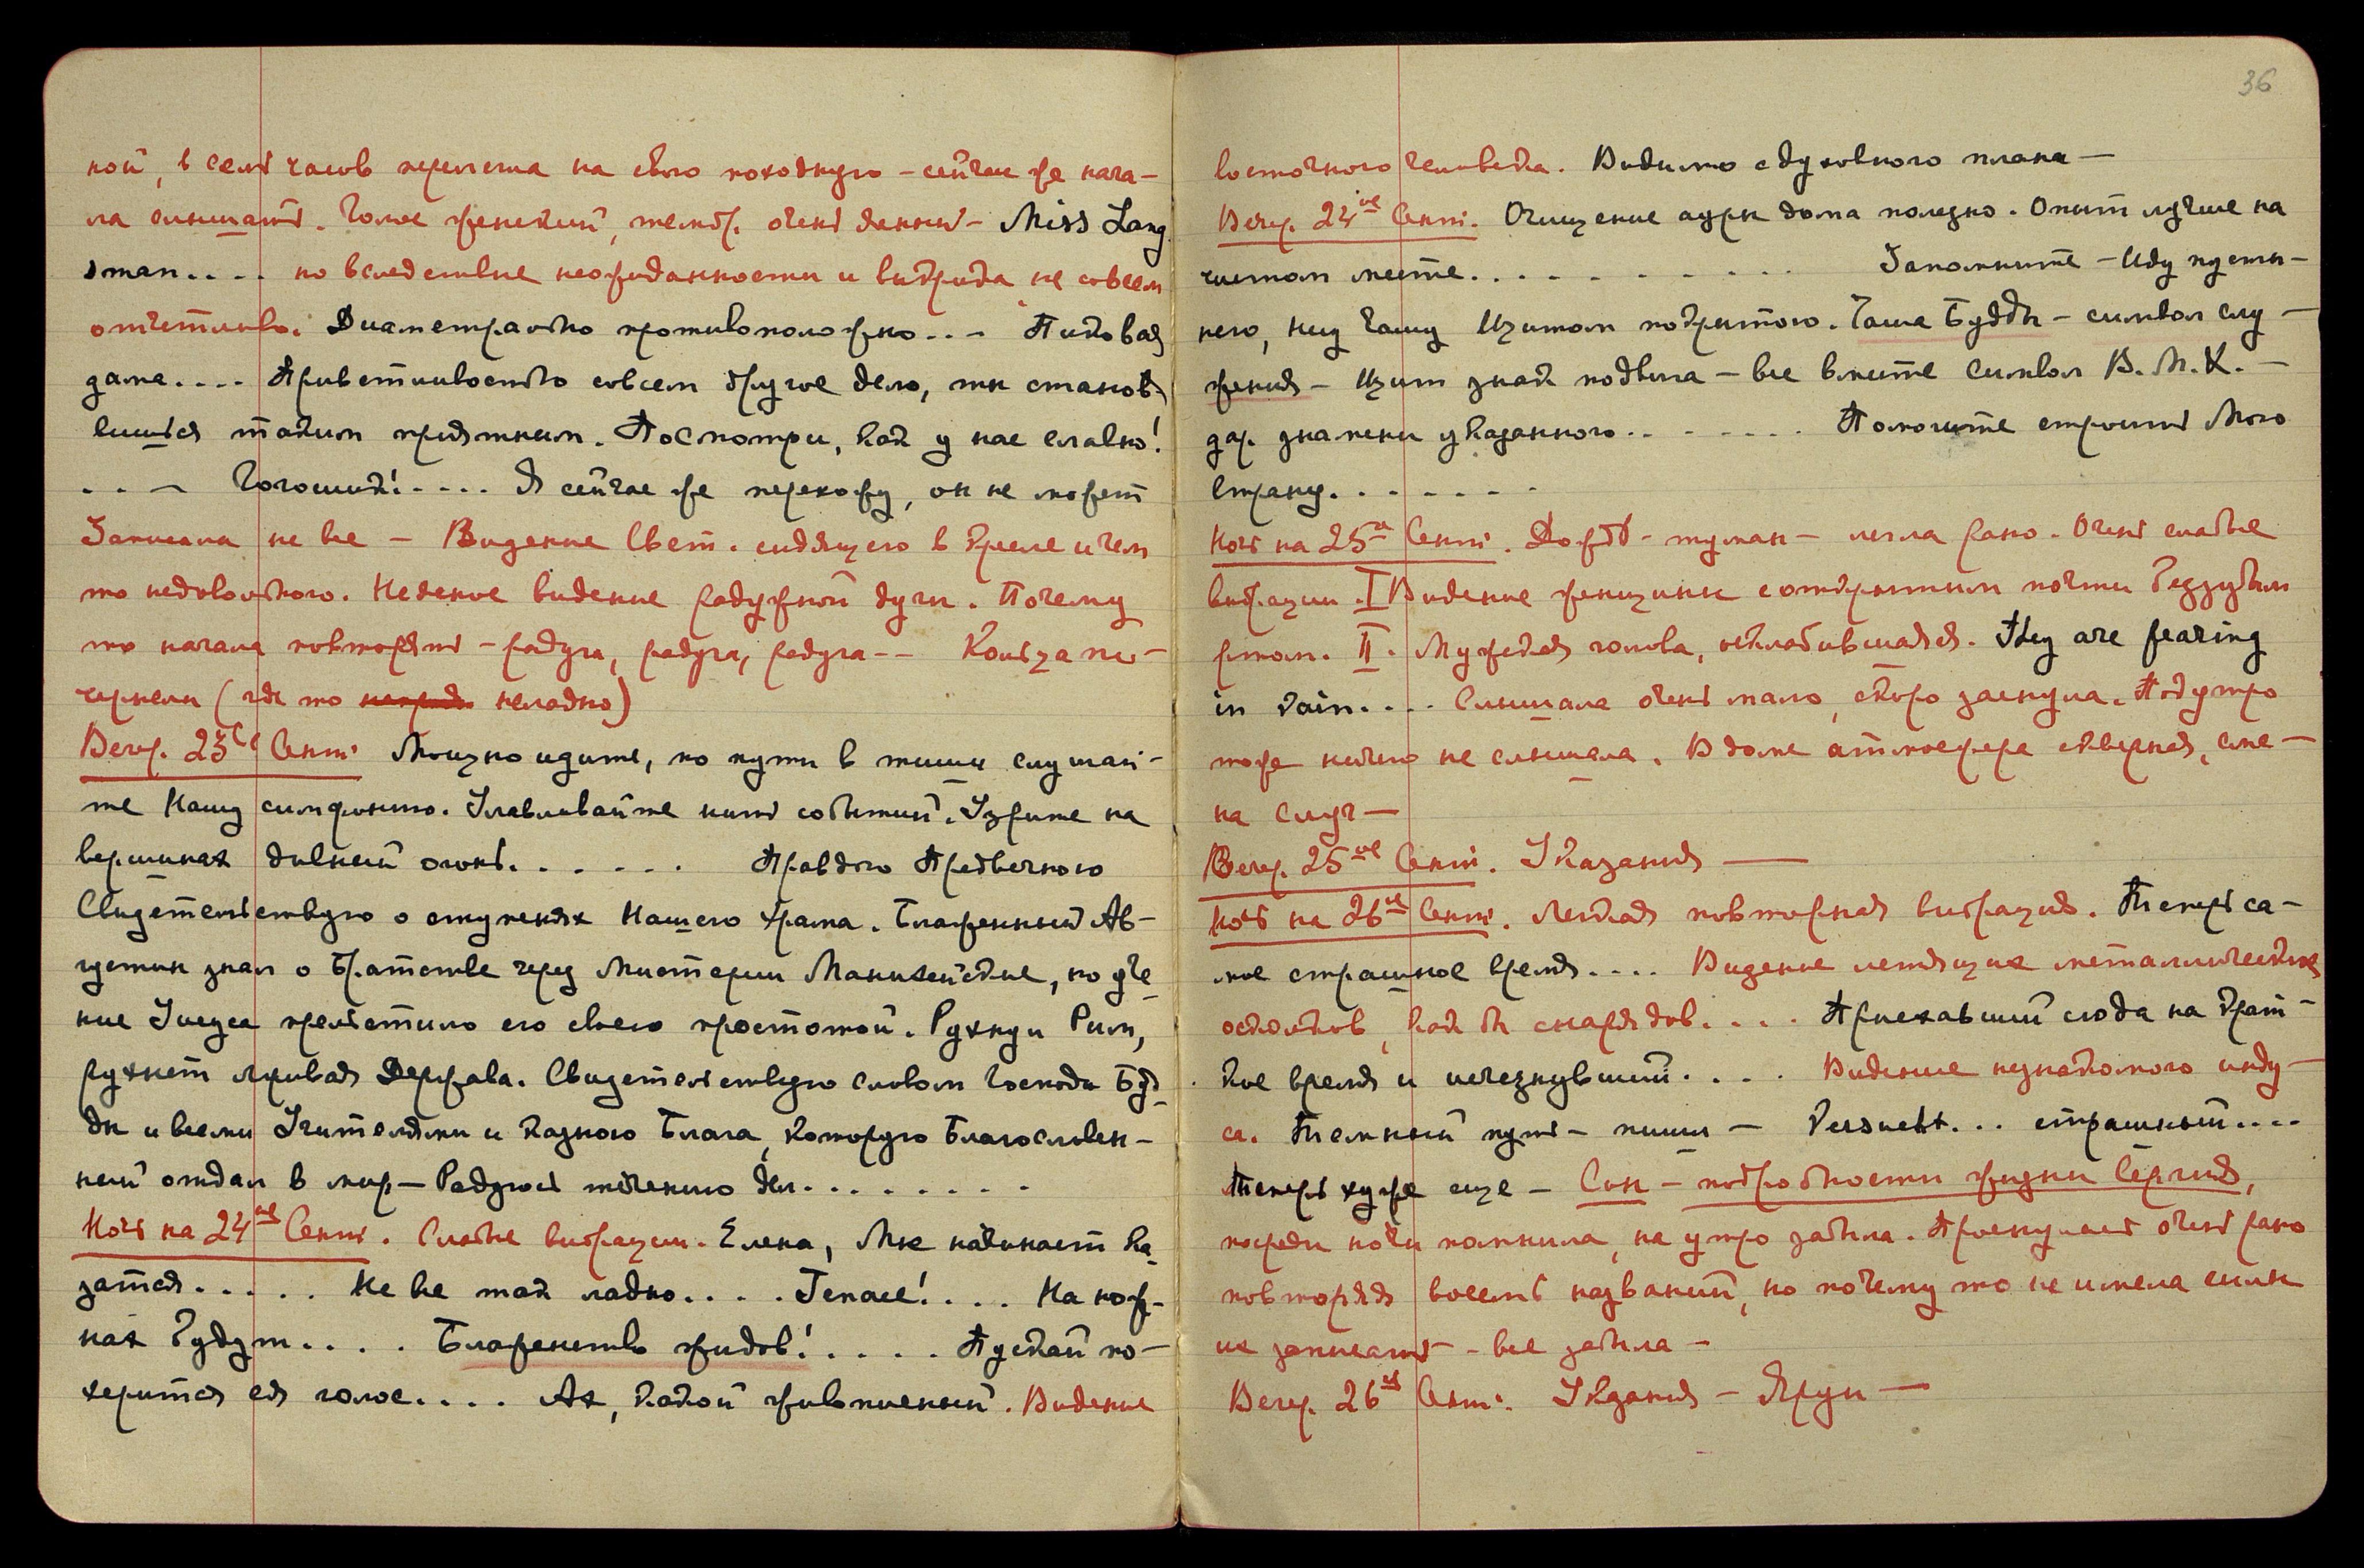 ной, в семь часов перешла на свою походную – сейчас же нача-
ла слышать. Голос женский, тембр. очень данный – Miss Lang
sman.... но вследствие неожиданности и выкрика не совсем
отчетливо. Диаметрально противоположно... Пиковая
дама.... Приветливостью совсем другое дело, ты становя
вишься таким приятным. Посмотри, как у нас славно!
... Хорошик!.... Я сейчас же перехожу, он не может
Записала не все – Видение Свет. сидящего в кресле и чем
то недовольного. Неясное видение радужной дуги. Почему
то начала повторять – радуга, радуга, радуга -- Кольца по-
чернели (где то неладно)
Вечер. 23ье Сент. Мощно идите, по пути в тиши слушай-
те Нашу симфонию. Улавливайте нить событий. Узрите на
вершинах дивный огонь...... Правдою Предвечного
Свидетельствую о ступенях Нашего Храма. Блаженный Ав-
густин знал о Братстве через Мистерии Манихейские, но уче-
ние Иисуса прельстило его своею простотой. Рухнул Рим,
рухнет лживая Держава. Свидетельствую словом Господа Буд-
ды и всеми Учителями и казною Блага, которую Благословен-
ный отдал в мир – Радуюсь течению дел........
Ночь на 24ое Сент. Слабые вибрации. Елена, Мне начинает ка-
затся..... Не все так ладно.... Тепло!.... На нож-
нах будут.... Блаженство жидов!..... Пускай по-
херится ея голос.... Ах, какой живописный. Видение
36
восточного человека. Видимо с духовного плана –
Вечер. 24ое Сент. Очищение ауры дома полезно. Опыт лучше на
чистом месте............ Запомните – Иду пусты-
нею, несу Чашу Щитом покрытою. Чаша Будды – символ слу-
жения – Щит знак подвига – все вместе Символ В. М. К. –
дар. знамени указанного........ Помогите строить Мою
Страну.......
Ночь на 25ое Сент. Дождь – туман – легла рано. Очень слабые
вибрации. I Видение женщины с открытым почти беззубым
ртом. II. Мужская голова, осклабившаяся. They are fearing
in vain.... Слышала очень мало, скоро заснула. Под утро
тоже ничего не слышала. В доме атмосфера скверная, сме-
на слуг –
Вечер. 25ое Сент. Указания ——
Ночь на 26ое Сент. Легкая повторная вибрация. Теперь са-
мое страшное время.... Видение летящих металлических
осколков, как бы снарядов.... Приехавший сюда на крат-
кое время и исчезнувший.... Видение незнакомого инду-
са. Темный путь – пиши – ... страшный....
Теперь хуже еще – Сон – подробности жизни Сергия,
посреди ночи помнила, на утро забыла. Проснулась очень рано
повторяя восемь названий, но почему то не имела силы
их записать – все забыла –
Вечер. 26ое Сент. Указания – Яруи –